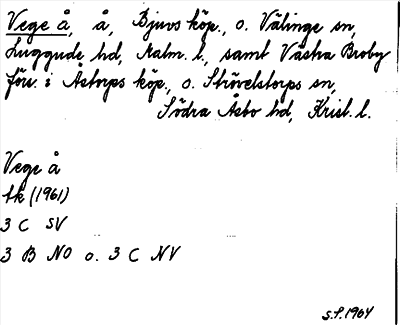 Vege å, å, Bjuvs köp., o. Välinge sn,
Luggude hd, Malm. l., samt Västra Broby
förs. i Åstorps köp., o. Strövelstorps sn,
Södra Åsbo hd, Krist. l.
Vege å
tk (1961)
3 C SV
3 B NO o. 3 C NV
S.P. 1964